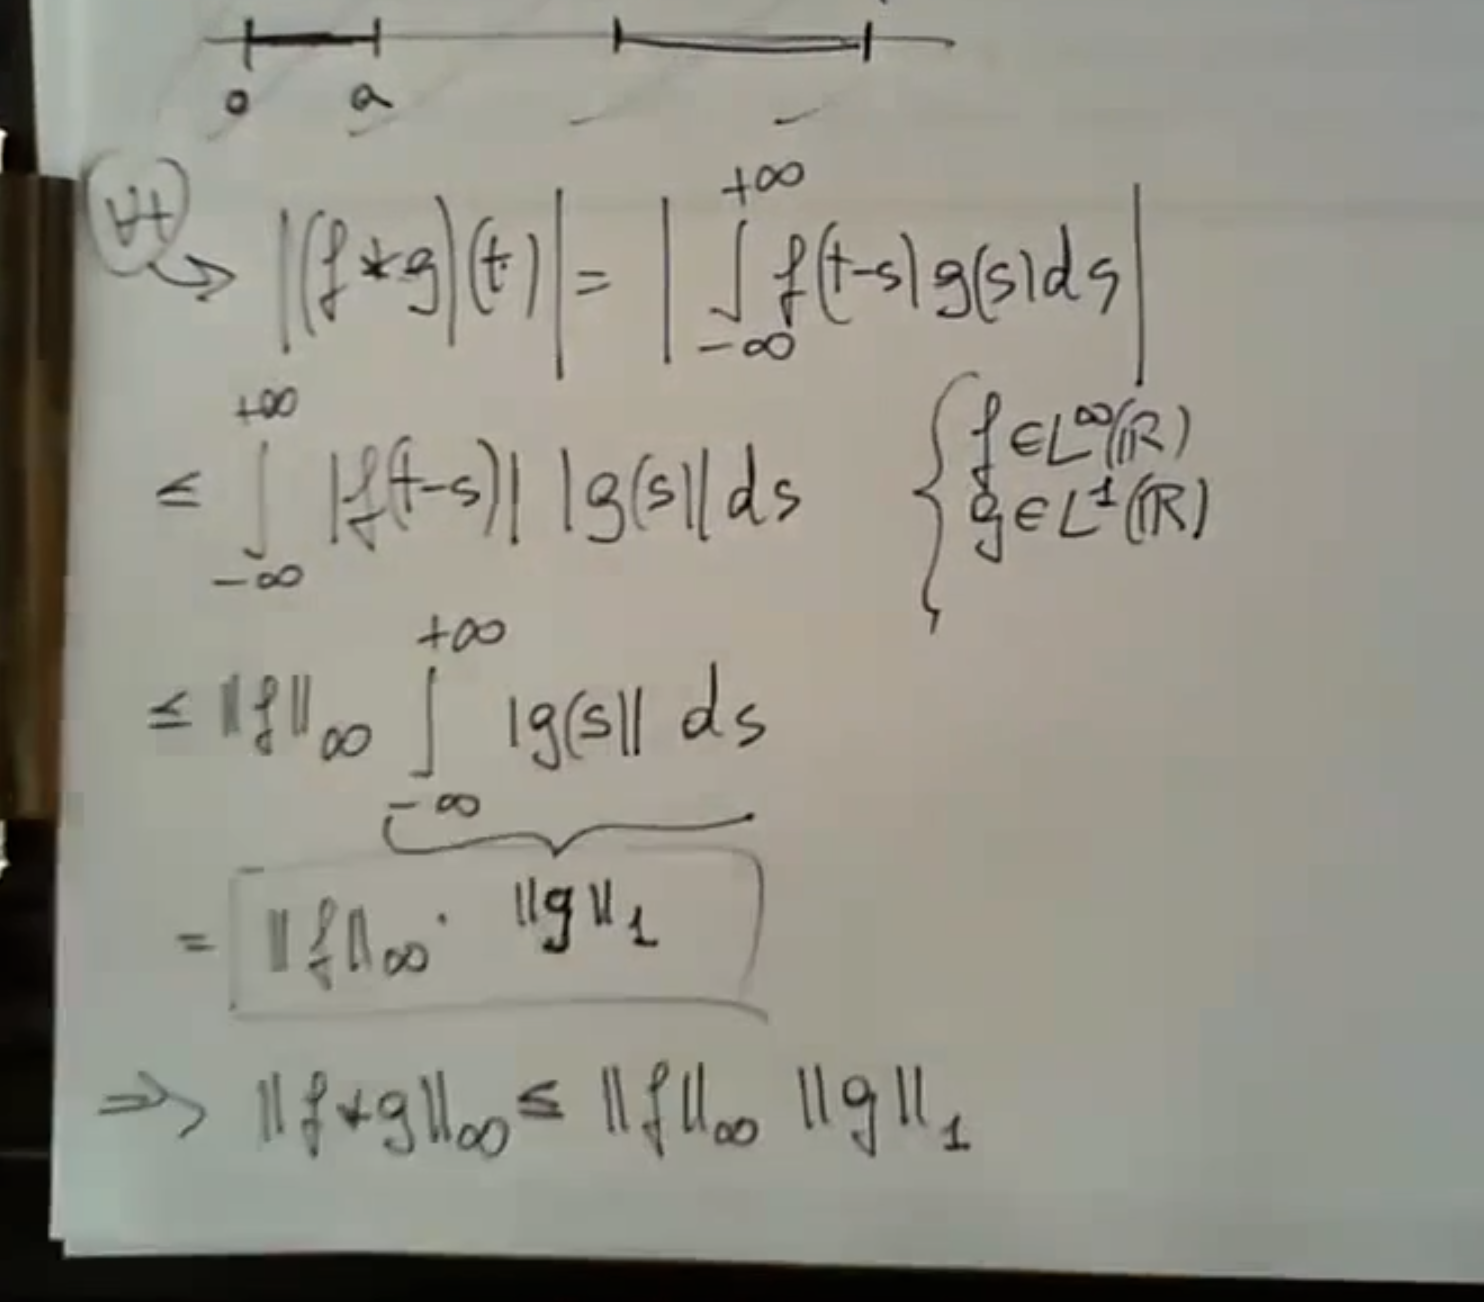 0 a
∀t → |(f*g)(t)| = | ∫_{-∞}^{+∞} f(t-s) g(s) ds |
≤ ∫_{-∞}^{+∞} |f(t-s)| |g(s)| ds { f ∈ L^∞(ℝ)
g ∈ L^1(ℝ)
≤ ‖f‖_∞ ∫_{-∞}^{+∞} |g(s)| ds
= ‖f‖_∞ · ‖g‖_1
⇒ ‖f*g‖_∞ ≤ ‖f‖_∞ ‖g‖_1